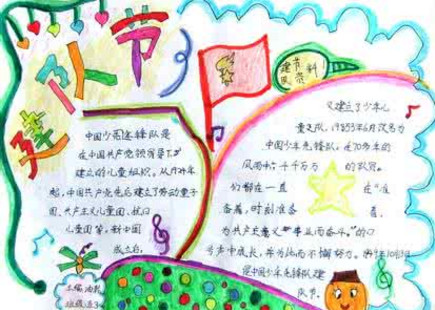 建队节
建队节资料
中国少年先锋队是
在中国共产党领导下
建立的儿童组织。从1924年
起,中国共产党先后建立了劳动童子
团、共产主义儿童团、抗日
儿童团等,新中国
成立后,
又建立了少年儿
童队,1953年6月改名为
中国少年先锋队,在70多年的
风雨中,千千万万的队员。
们都在一直 在“准
备着,时刻准备着,
为共产主义事业而奋斗。”的口
号声中成长,并为此而不懈努力。1949年10月13日
是中国少年先锋队建
队节。
主编
班级